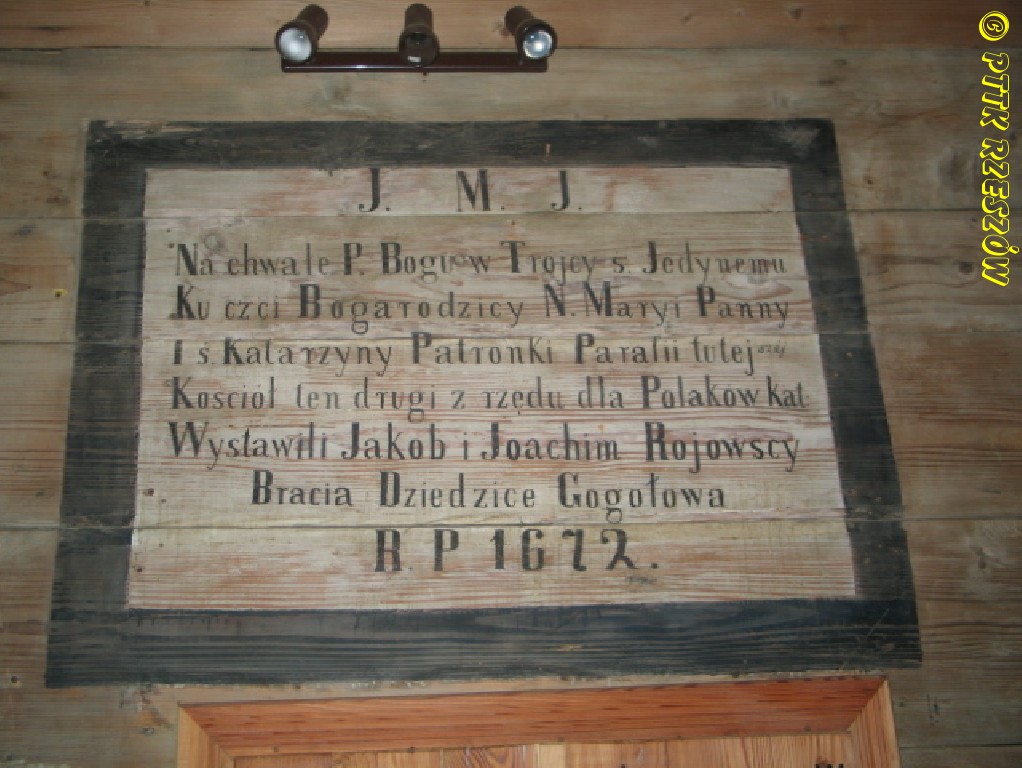 J. M. J.
Na chwałe P. Bogu w Trojcy s. Jedynemu
Ku czci Bogarodzicy N. Maryi Panny
I ś Katarzyny Patronki Parafii tutejszej
Kościół ten drugi z rzędu dla Polaków kat.
Wystawili Jakób i Joachim Rojowscy
Bracia Dziedzice Gogołowa
R. P 1672.
© PTTK RZESZÓW